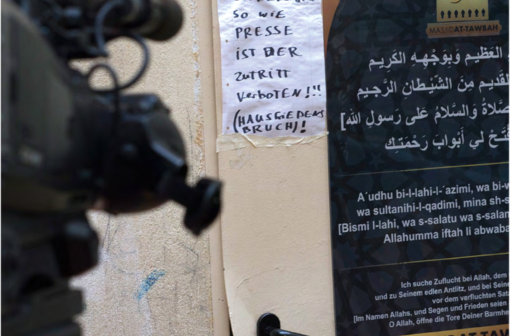 SO WIE
PRESSE
IST DER
ZUTRITT
VERBOTEN!!!
(HAUSFRIEDENS
BRUCH)!
MASJID AT-TAWBAH
العظيم وَبِوَجْهِهِ الكَرِيم
القديم مِنَ الشَّيْطَانِ الرَّجِيم
وَالسَّلامُ عَلى رَسولِ الله]
افْتَحْ لي أَبْوابَ رَحْمَتِكَ
A´udhu bi-l-lahi-l-´azimi, wa bi-
wa sultanihi-l-qadimi, mina sh-s
[Bismi l-lahi, wa s-salatu wa s-salan
Allahumma iftah li abwaba
Ich suche Zuflucht bei Allah, dem
und zu Seinem edlen Antlitz, und bei Seiner
vor dem verfluchten Satan
[Im Namen Allahs, und Segen und Frieden seien
O Allah, öffne die Tore Deiner Barmhe